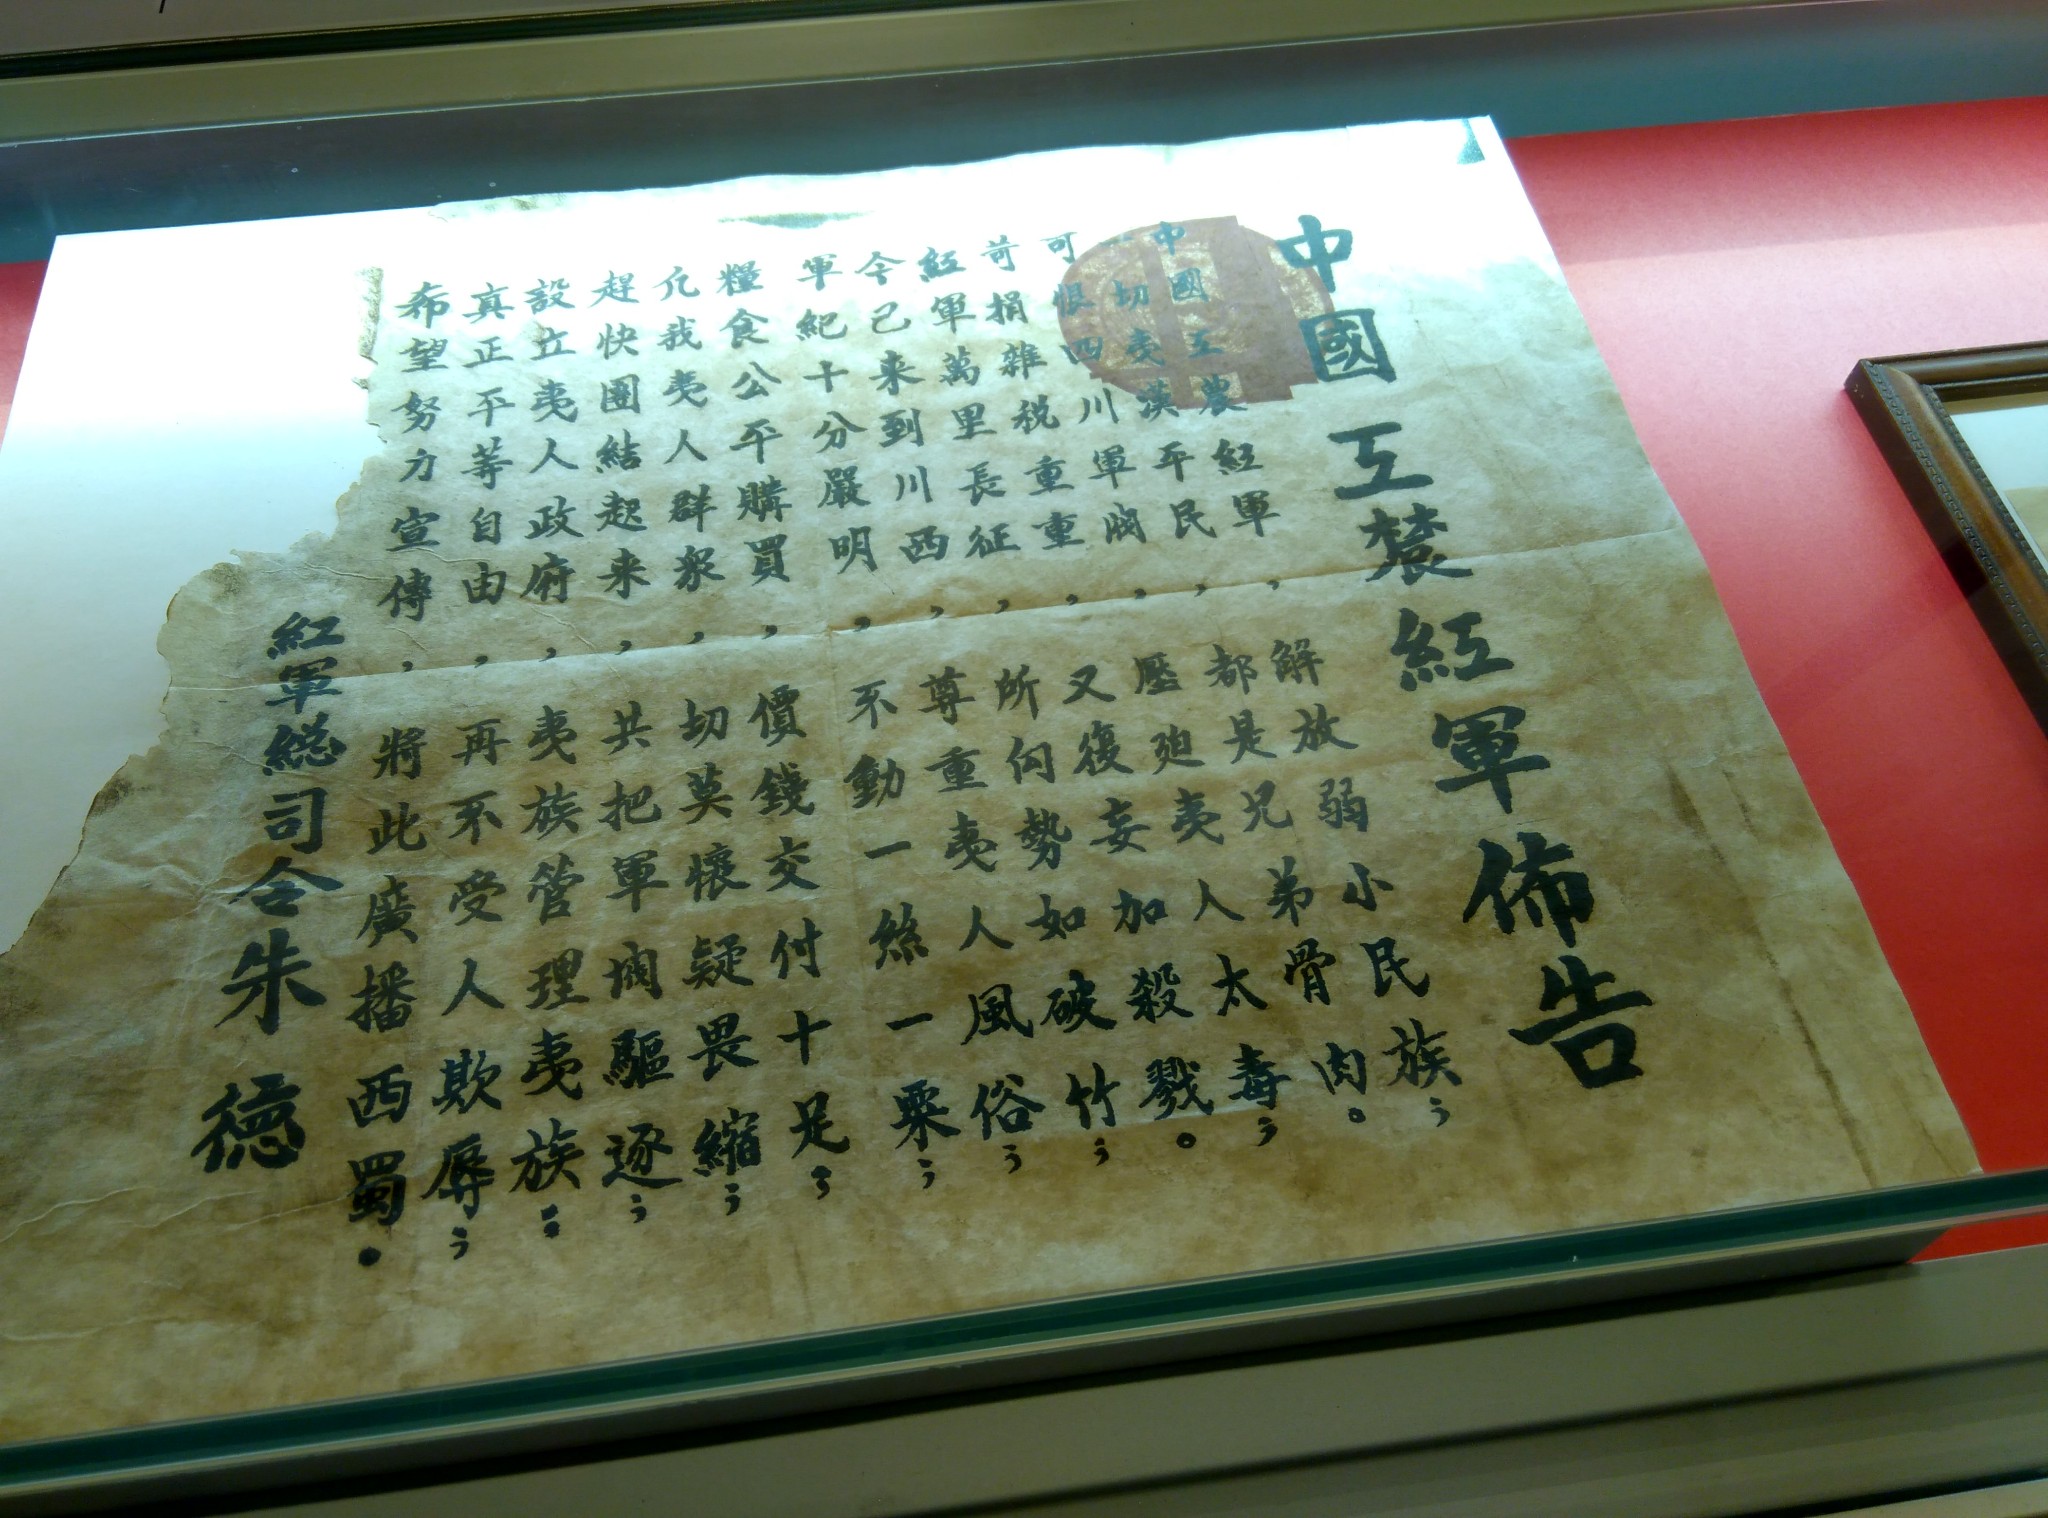 中國工農紅軍佈告
中國工農紅軍，解放弱小民族；
一切夷漢平民，都是兄弟骨肉。
可恨四川軍閥，壓迫夷人太毒；
苛捐雜稅重重，又復妄加殺戮。
紅軍萬里長征，所向勢如破竹；
今已来到川西，尊重夷人風俗；
軍紀十分嚴明，不動一絲一粟；
糧食公平購買，價錢交付十足；
凡我夷人群衆，切莫懷疑畏縮；
趕快團結起来，共把軍閥驅逐；
設立夷人政府，夷族管理夷族；
真正平等自由，再不受人欺辱；
希望努力宣傳，將此廣播西蜀。
紅軍總司令朱德